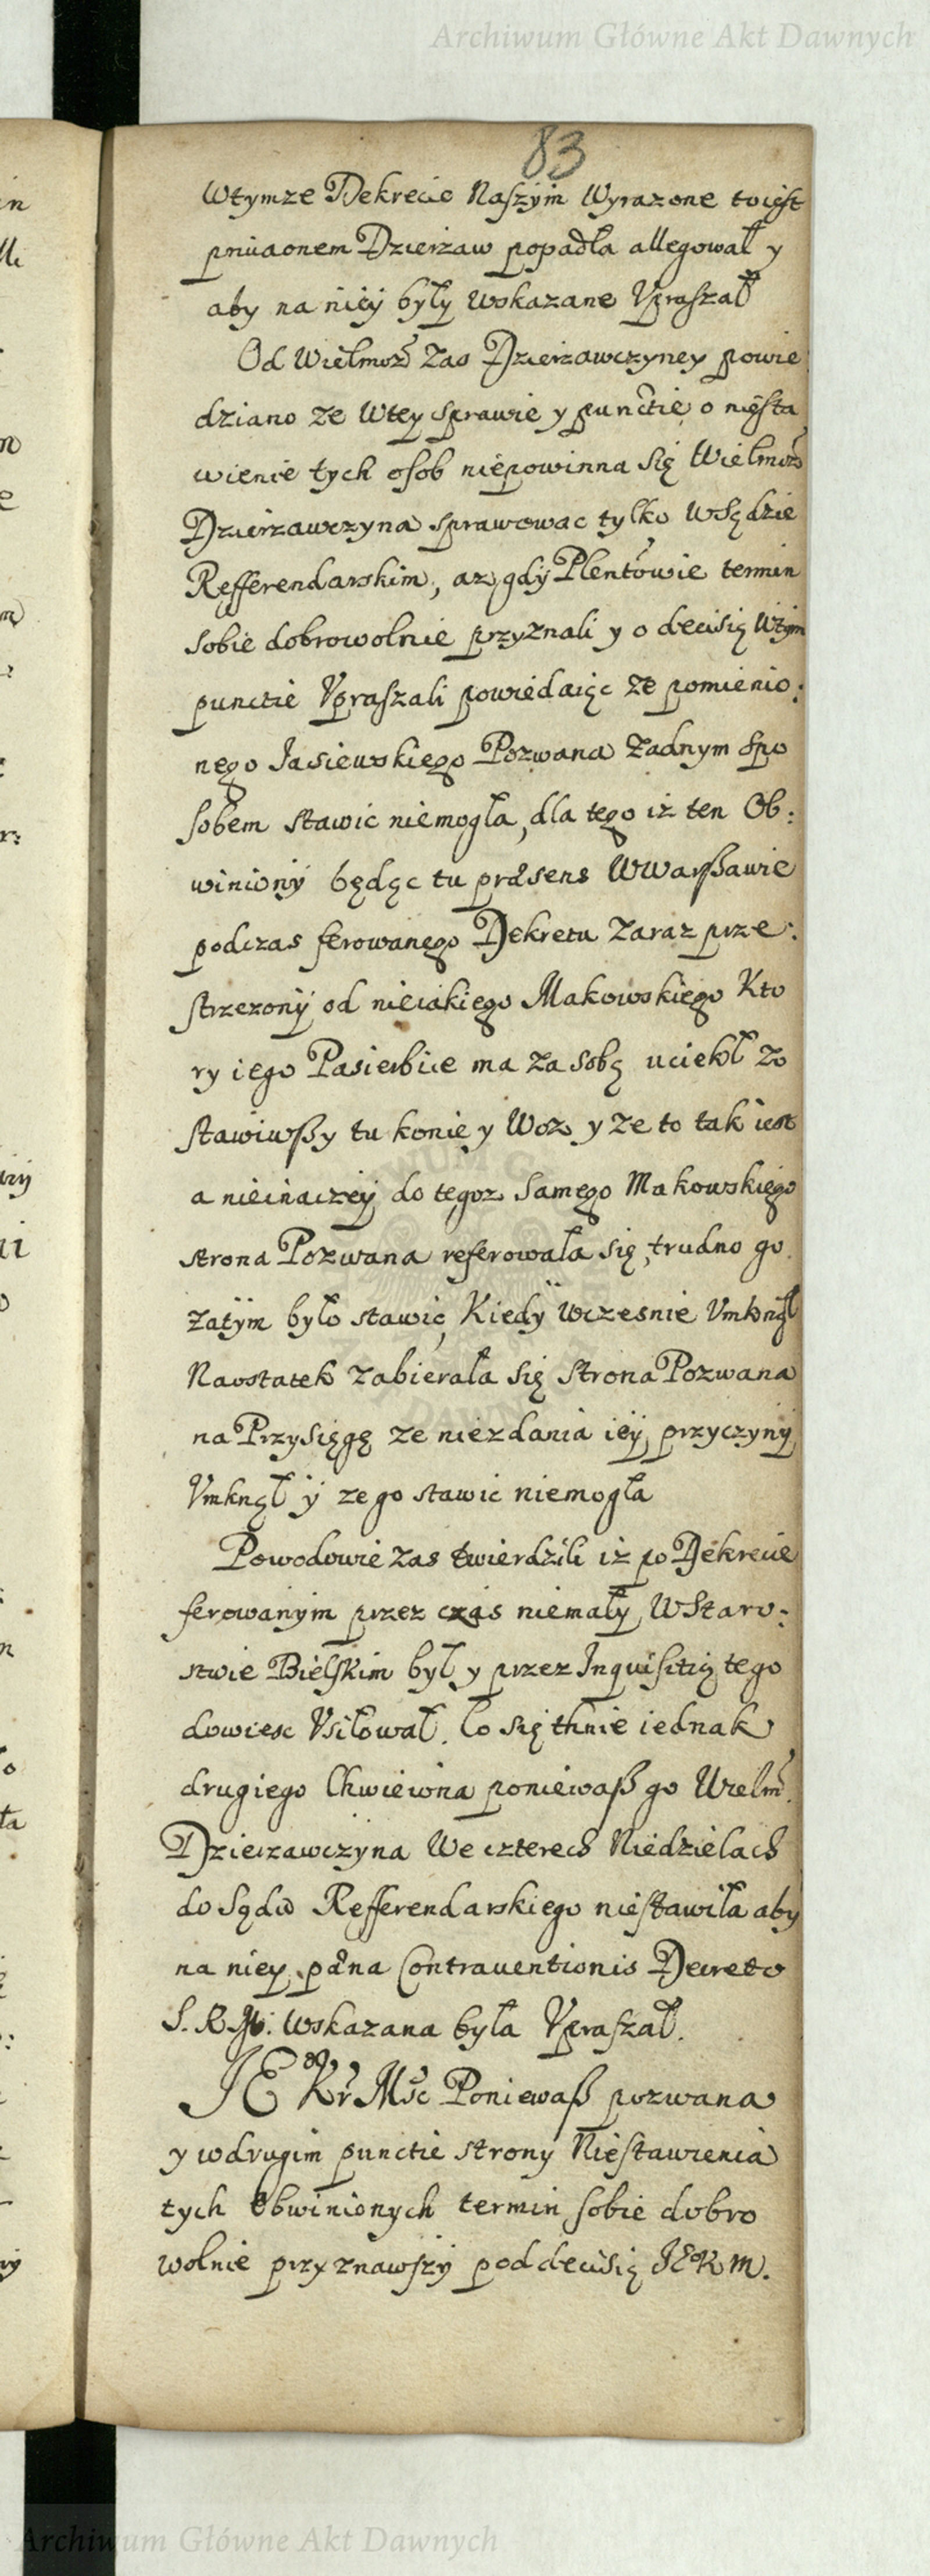 Archiwum Główne Akt Dawnych
83
Wtymze Dekrecie Naszym Wyrazone toiest
priuaonem Dzierzaw popadła allegował y
aby na niey były wskazane Vpraszał
Od Wielmoz Zas Dzierzawczyney powie
dziano ze Wtey sprawie y punctie o niesta
wienie tych osob niepowinna się Wielmoz
Dzierzawczyna sprawowac tylko WSądzie
Refferendarskim, az gdy Plentowie termin
sobie dobrowolnie przyznali y o decisią Wtym
punctie Vpraszali powiedaiąc ze pomienio:
nego Jasiewskiego Pozwana Zadnym spo
sobem stawic niemogła, dla tego iż ten Ob:
winiony będąc tu præsens WWarszawie
podczas ferowanego Dekretu Zaraz prze:
strzezony od nieiakiego Makowskiego Kto
ry iego Pasierbice ma za sobą uciekł Zo
stawiwszy tu konie y Woz y ze to tak iest
a nieinaczey do tegoz samego Makowskiego
strona Pozwana referowała się, trudno go
zatym było stawic, Kiedy Wczesnie Vmknął
Naostatek Zabierała się Strona Pozwana
na Przysięgę ze niezdania iey przyczyny
Vmknął y ze go stawic niemogła
Powodowie Zas twierdzili iż po Dekrecie
ferowanym przez czas niemały WStaro:
stwie Bielskim był y przez Inquisitią tego
dowiesc Vsiłował. Co się tknie iednak
drugiego Chwiewna poniewasz go Wielm.
Dzierzawczyna We czterech Niedzielach
do Sądu Refferendarskiego niestawiła aby
na niey pæna Contrauentionis Decreto
S. R. M. wskazana była Vpraszał.
JE Kr Msc Poniewasz pozwana
y wdrugim punctie strony Niestawienia
tych Obwinionych termin sobie dobro
wolnie przyznawszy pod decisią JEKM.
Archiwum Główne Akt Dawnych